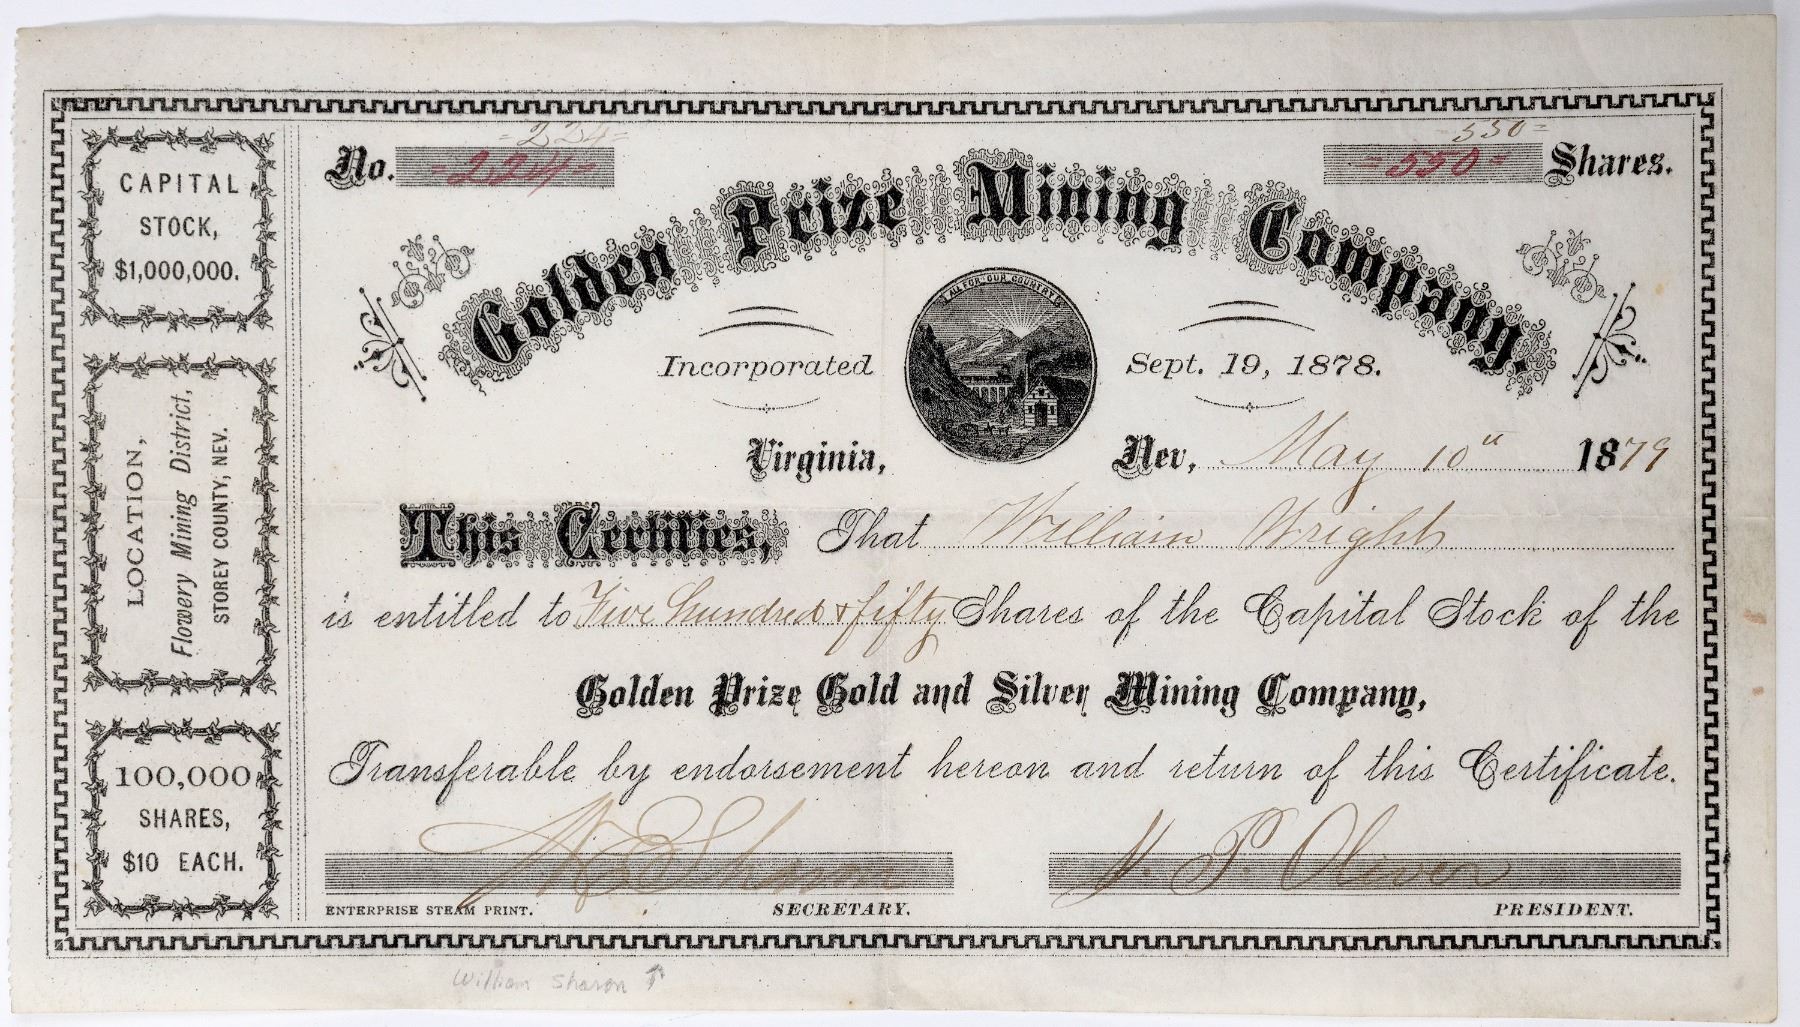 CAPITAL
STOCK,
$1,000,000.
LOCATION,
Flowery Mining District,
STOREY COUNTY, NEV.
100,000
SHARES,
$10 EACH.
=224=
No. =224=
=550=
=550= Shares.
Golden Prize Mining Company.
ALL FOR OUR COUNTRY
Incorporated Sept. 19, 1878.
Virginia, Nev, May 10" 1879
This Certifies, That William Wright
is entitled to Five hundred & fifty Shares of the Capital Stock of the
Golden Prize Gold and Silver Mining Company,
Transferable by endorsement hereon and return of this Certificate.
Sharon P. Oliver
ENTERPRISE STEAM PRINT. SECRETARY. PRESIDENT.
William Sharon ↑